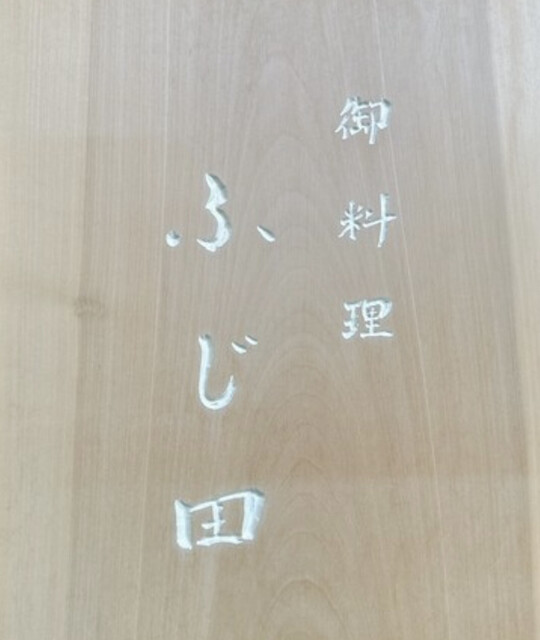 御料理
ふじ田